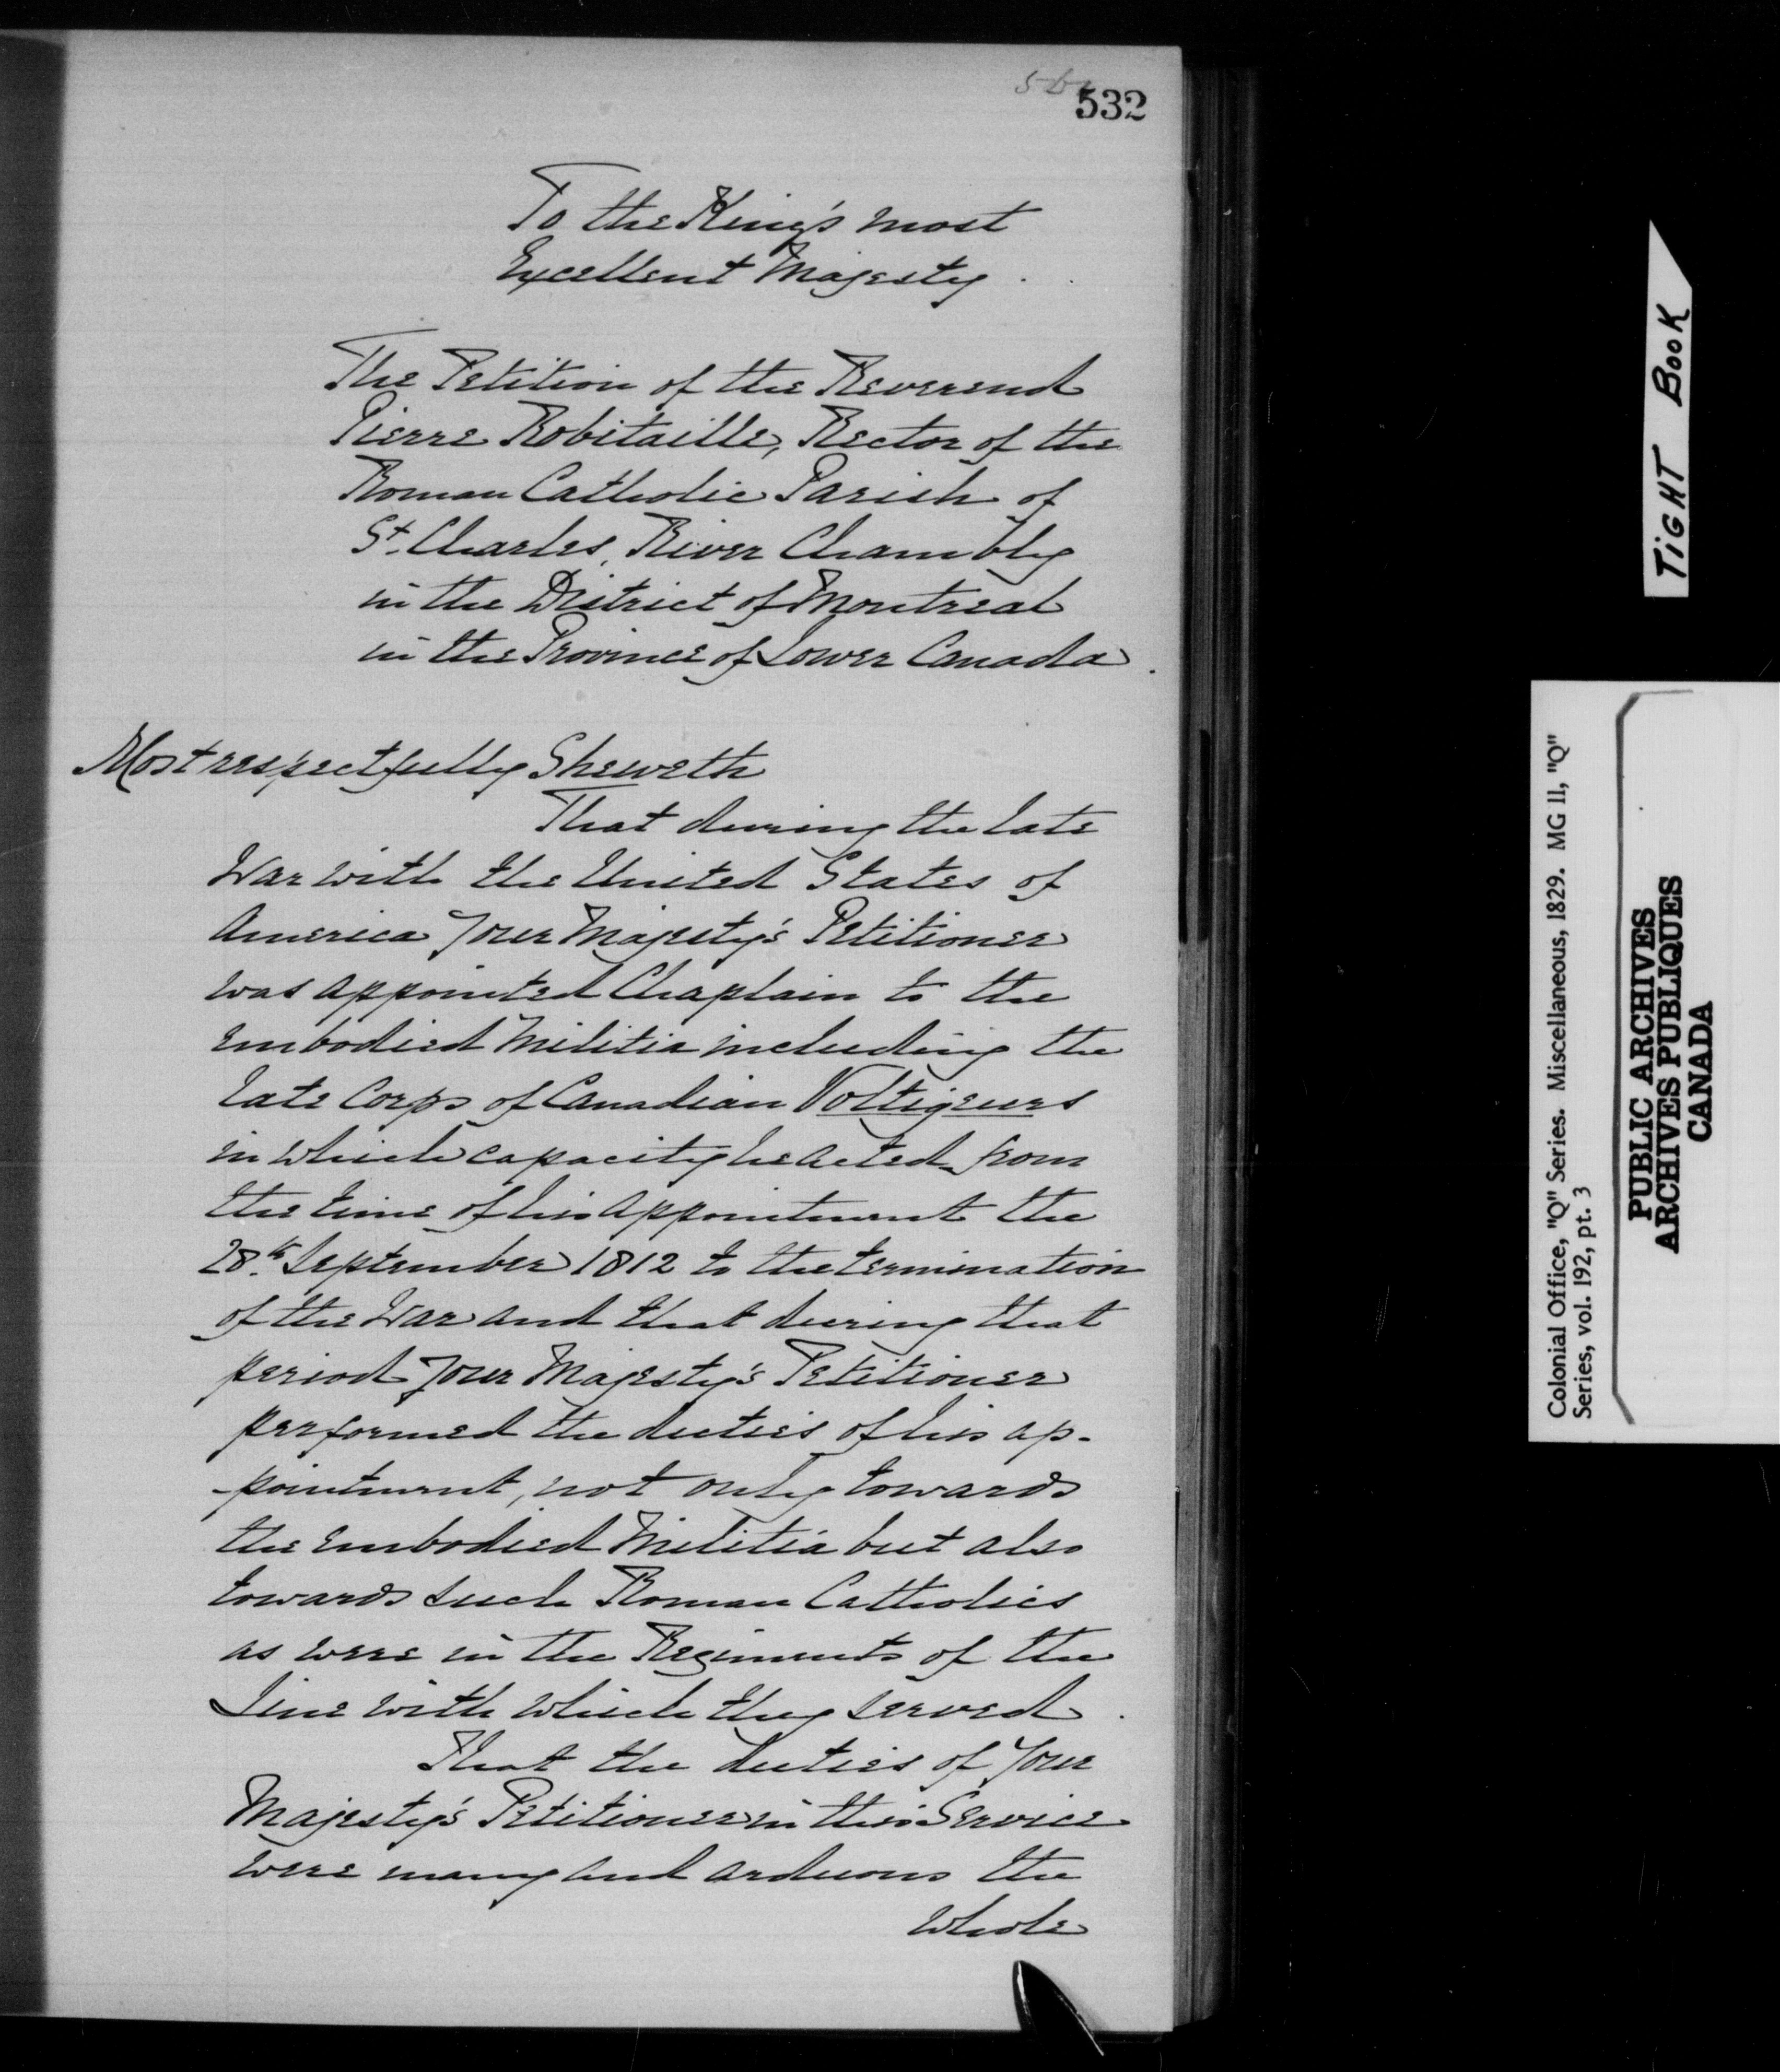 532
To the King's most
Excellent Majesty.
The Petition of the Reverend
Pierre Robitaille, Rector of the
Roman Catholic Parish of
St. Charles, River Chambly
in the District of Montreal
in the Province of Lower Canada.
Most respectfully Sheweth
That during the late
War with the United States of
America Your Majesty's Petitioner
was appointed Chaplain to the
Embodied Militia including the
late Corps of Canadian Voltigeurs
in which capacity he acted from
the time of his appointment the
28th. September 1812 to the termination
of the War and that during that
period Your Majesty's Petitioner
performed the duties of his ap-
-pointment, not only towards
the Embodied Militia but also
towards such Roman Catholics
as were in the Regiments of the
Line with which they served.
That the duties of Your
Majesty's Petitioner in this Service
were many and arduous the
whole
TIGHT BOOK
Colonial Office, "Q" Series. Miscellaneous, 1829. MG 11, "Q"
Series, vol. 192, pt. 3
PUBLIC ARCHIVES
ARCHIVES PUBLIQUES
CANADA